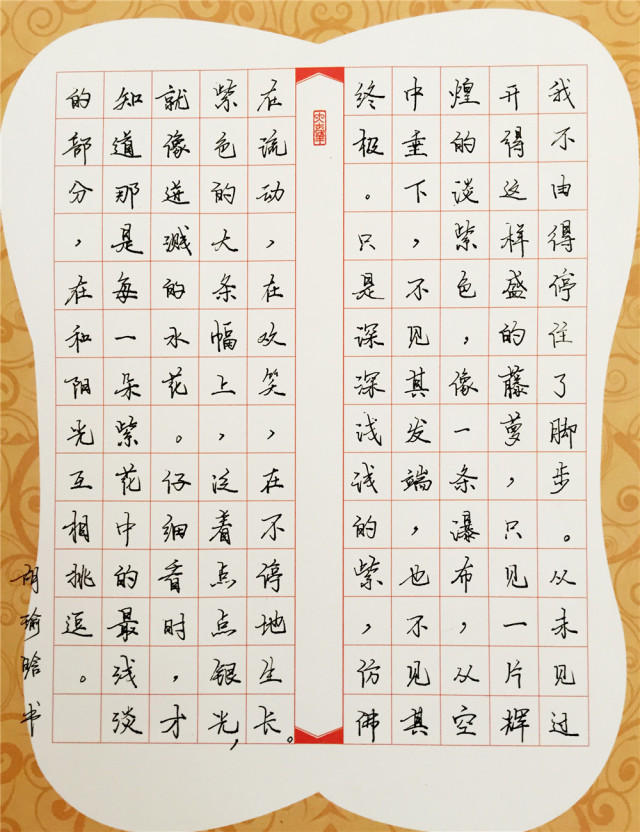 我不由得停住了脚步。从未见过
开得这样盛的藤萝，只见一片辉
煌的淡紫色，像一条瀑布，从空
中垂下，不见其发端，也不见其
终极。只是深深浅浅的紫，仿佛
在流动，在欢笑，在不停地生长。
紫色的大条幅上，泛着点点银光，
就像迸溅的水花。仔细看时，才
知道那是每一朵紫花中的最浅淡
的部分，在和阳光互相挑逗。
胡瑜晗书